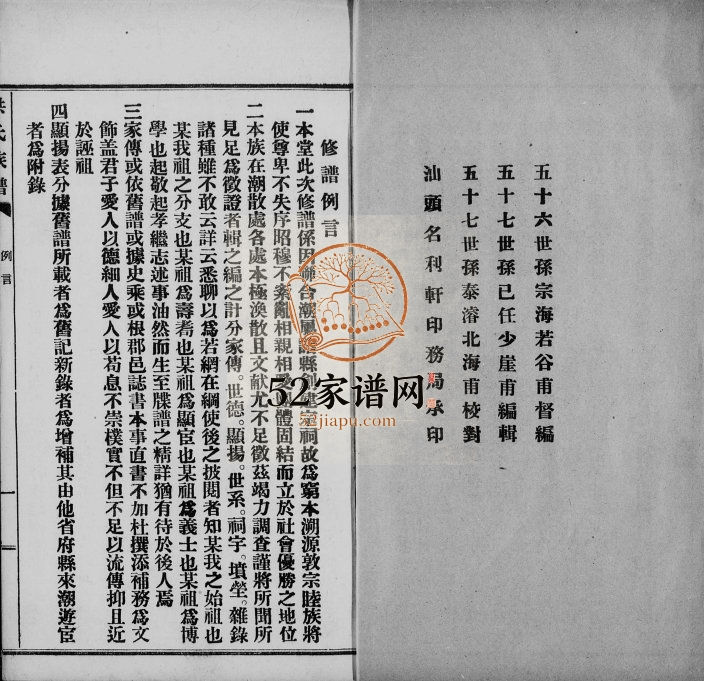 五十六世孫宗海若谷甫督編
五十七世孫已任少崖甫編輯
五十七世孫泰濬北海甫校對
汕頭名利軒印務局承印
修譜例言
一本堂此次修譜係因聯合潮屬諸縣創建宗祠故爲窮本溯源敦宗睦族將
使尊卑不失序昭穆不紊亂相親相愛體固結而立於社會優勝之地位
二本族在潮散處各處本極渙散且文献尤不足徵茲竭力調查謹將所聞所
見足爲徵證者輯之編之計分家傳。世德。顯揚。世系。祠宇。墳塋。雜錄
諸種雖不敢云詳云悉聊以爲若網在綱使後之披閱者知某我之始祖也
某我祖之分支也某祖爲壽耇也某祖爲顯宦也某祖爲義士也某祖爲博
學也起敬起孝繼志述事油然而生至牒譜之精詳猶有待於後人焉
三家傳或依舊譜或據史乘或根郡邑誌書本事直書不加杜撰添補務爲文
飾盖君子愛人以德細人愛人以苟息不崇樸實不但不足以流傳抑且近
於誣祖
四顯揚表分據舊譜所載者爲舊記新錄者爲增補其由他省府縣來潮遊宦
者爲附錄
氏族譜
例言
一
52家谱网
52jiapu.com